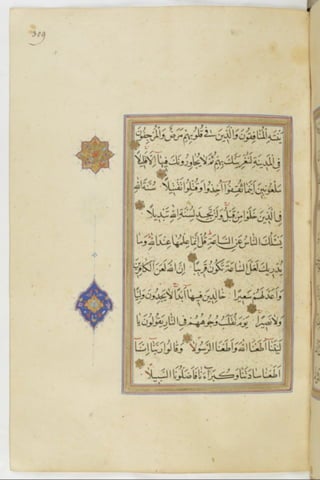 ٣٥٩
ينته المنافقون والذين في قلوبهم مرض والمرجفون
في المدينة لنغرينك بهم ثم لا يجاورونك فيها الا قليلا
ملعونين اينما ثقفوا اخذوا وقتلوا تقتيلا سنة الله
في الذين خلوا من قبل ولن تجد لسنة الله تبديلا
يسئلك الناس عن الساعة قل انما علمها عند الله وما
يدريك لعل الساعة تكون قريبا ان الله لعن الكافرين
واعد لهم سعيرا خالدين فيها ابدا لا يجدون وليا
ولا نصيرا يوم تقلب وجوههم في النار يقولون يا
ليتنا اطعنا الله واطعنا الرسولا وقالوا ربنا انا
اطعنا سادتنا وكبراءنا فاضلونا السبيلا